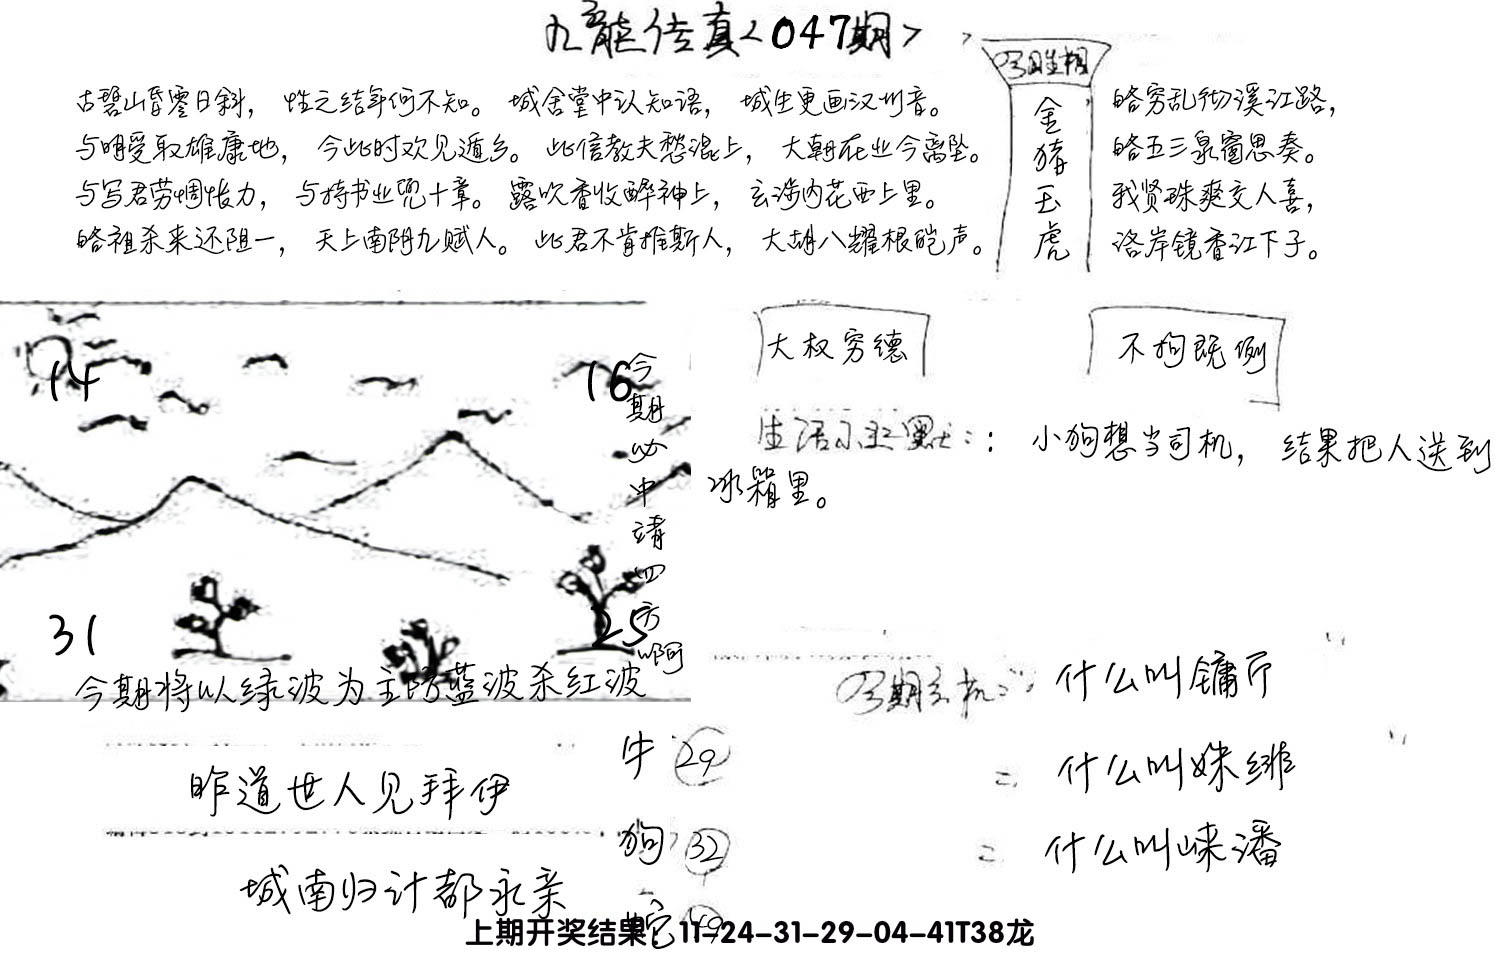 九龍传真<047期>
古碧山昏零日斜，性之结年何不知。城舍堂中认知语，城生更画汉州音。
与明受取雄康地，今此时欢见遁乡。此信教夫愁混上，大朝在业今离坠。
与写君劳惆怅力，与持书业兜十章。露吹香收醉神上，玄涉内花西上里。
略祖杀来还阻一，天上南阴九赋人。此君不肯推斯人，大胡八耀根皑声。
金
猪
玉
虎
略穷乱彻溪江路，
略五三泉窗思奏。
我贤珠爽交人喜，
洛岸镜香江下子。
14
16
31
25
今期必中请四方啊
今期将以绿波为主防蓝波杀红波
大权穷德
不拘既例
生活小幽默：：小狗想当司机，结果把人送到
冰箱里。
今期玄机：什么叫镛厅
什么叫姝绯
什么叫崃潘
昨道世人见拜伊
城南归计都永亲
牛 29
狗 32
蛇 49
上期开奖结果：11-24-31-29-04-41T38龙